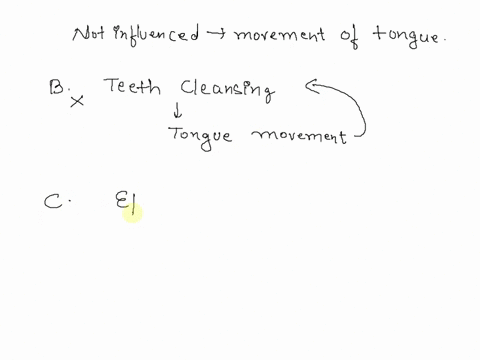 Not influenced → movement of tongue.
B. Teeth Cleansing
x
↓
Tongue movement
C. El